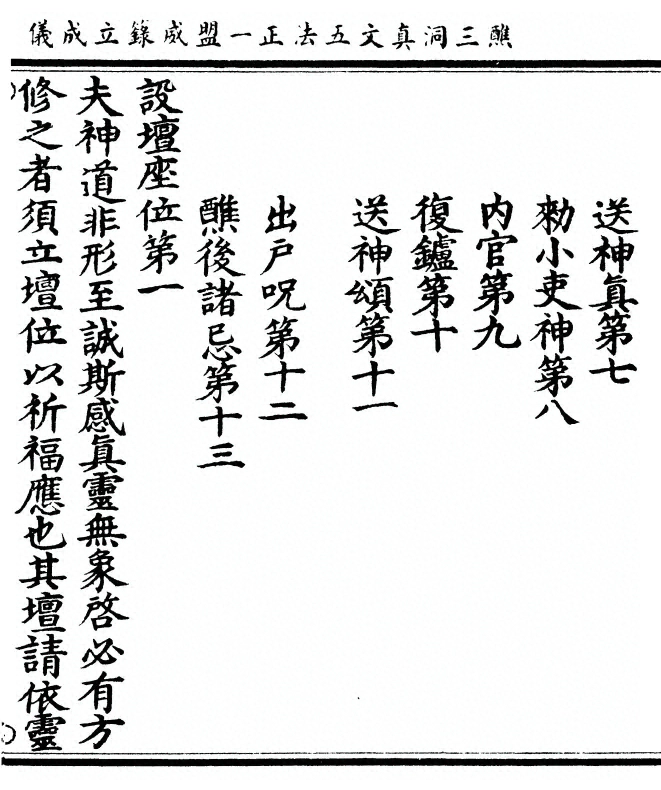 醮三洞真文五法正一盟威籙立成儀
送神眞第七
勑小吏神第八
内官第九
復鑪第十
送神頌第十一
出戶呪第十二
醮後諸忌第十三
設壇座位第一
夫神道非形至誠斯感眞靈無象啓必有方
修之者須立壇位以祈福應也其壇請依靈